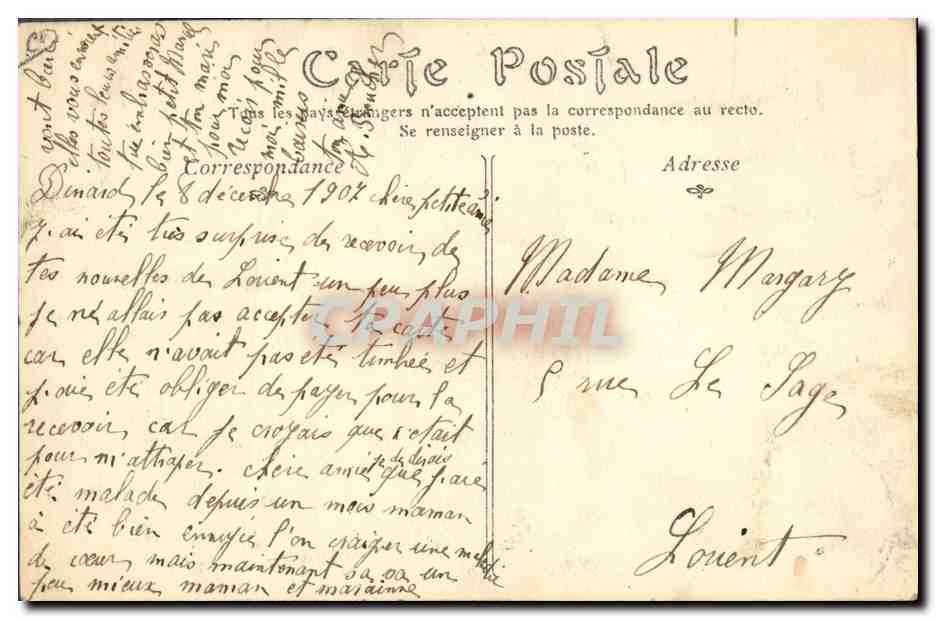 Carte Postale
Tous les pays étrangers n'acceptent pas la correspondance au recto.
Se renseigner à la poste.
Correspondance
Adresse
Dinard le 8 décembre 1907 chère petite amie
J'ai été très surprise de recevoir de
tes nouelles de Lorient un peu plus
je ne allais pas accepter ta carte
car elle n'avait pas été timbrée et
j'aie été obliger de payer pour la
recevoir car je croyais que c'était
pour m'attraper. chère amie je te dirais que j'aie
été malade depuis un mois maman
à été bien ennuyée l'on craigner une maladie
de cœur mais maintenant sa va un
peu mieux maman et marainne
vont bien
elles vous envoie
toutes leurs amitiés
tu embrasseras
bien petit Marcel
et ton mari
pour moi
recois pour
moi mille
baisers
ton amie
Madame Margary
5 rue Le Sage
Lorient
CPAPHIL